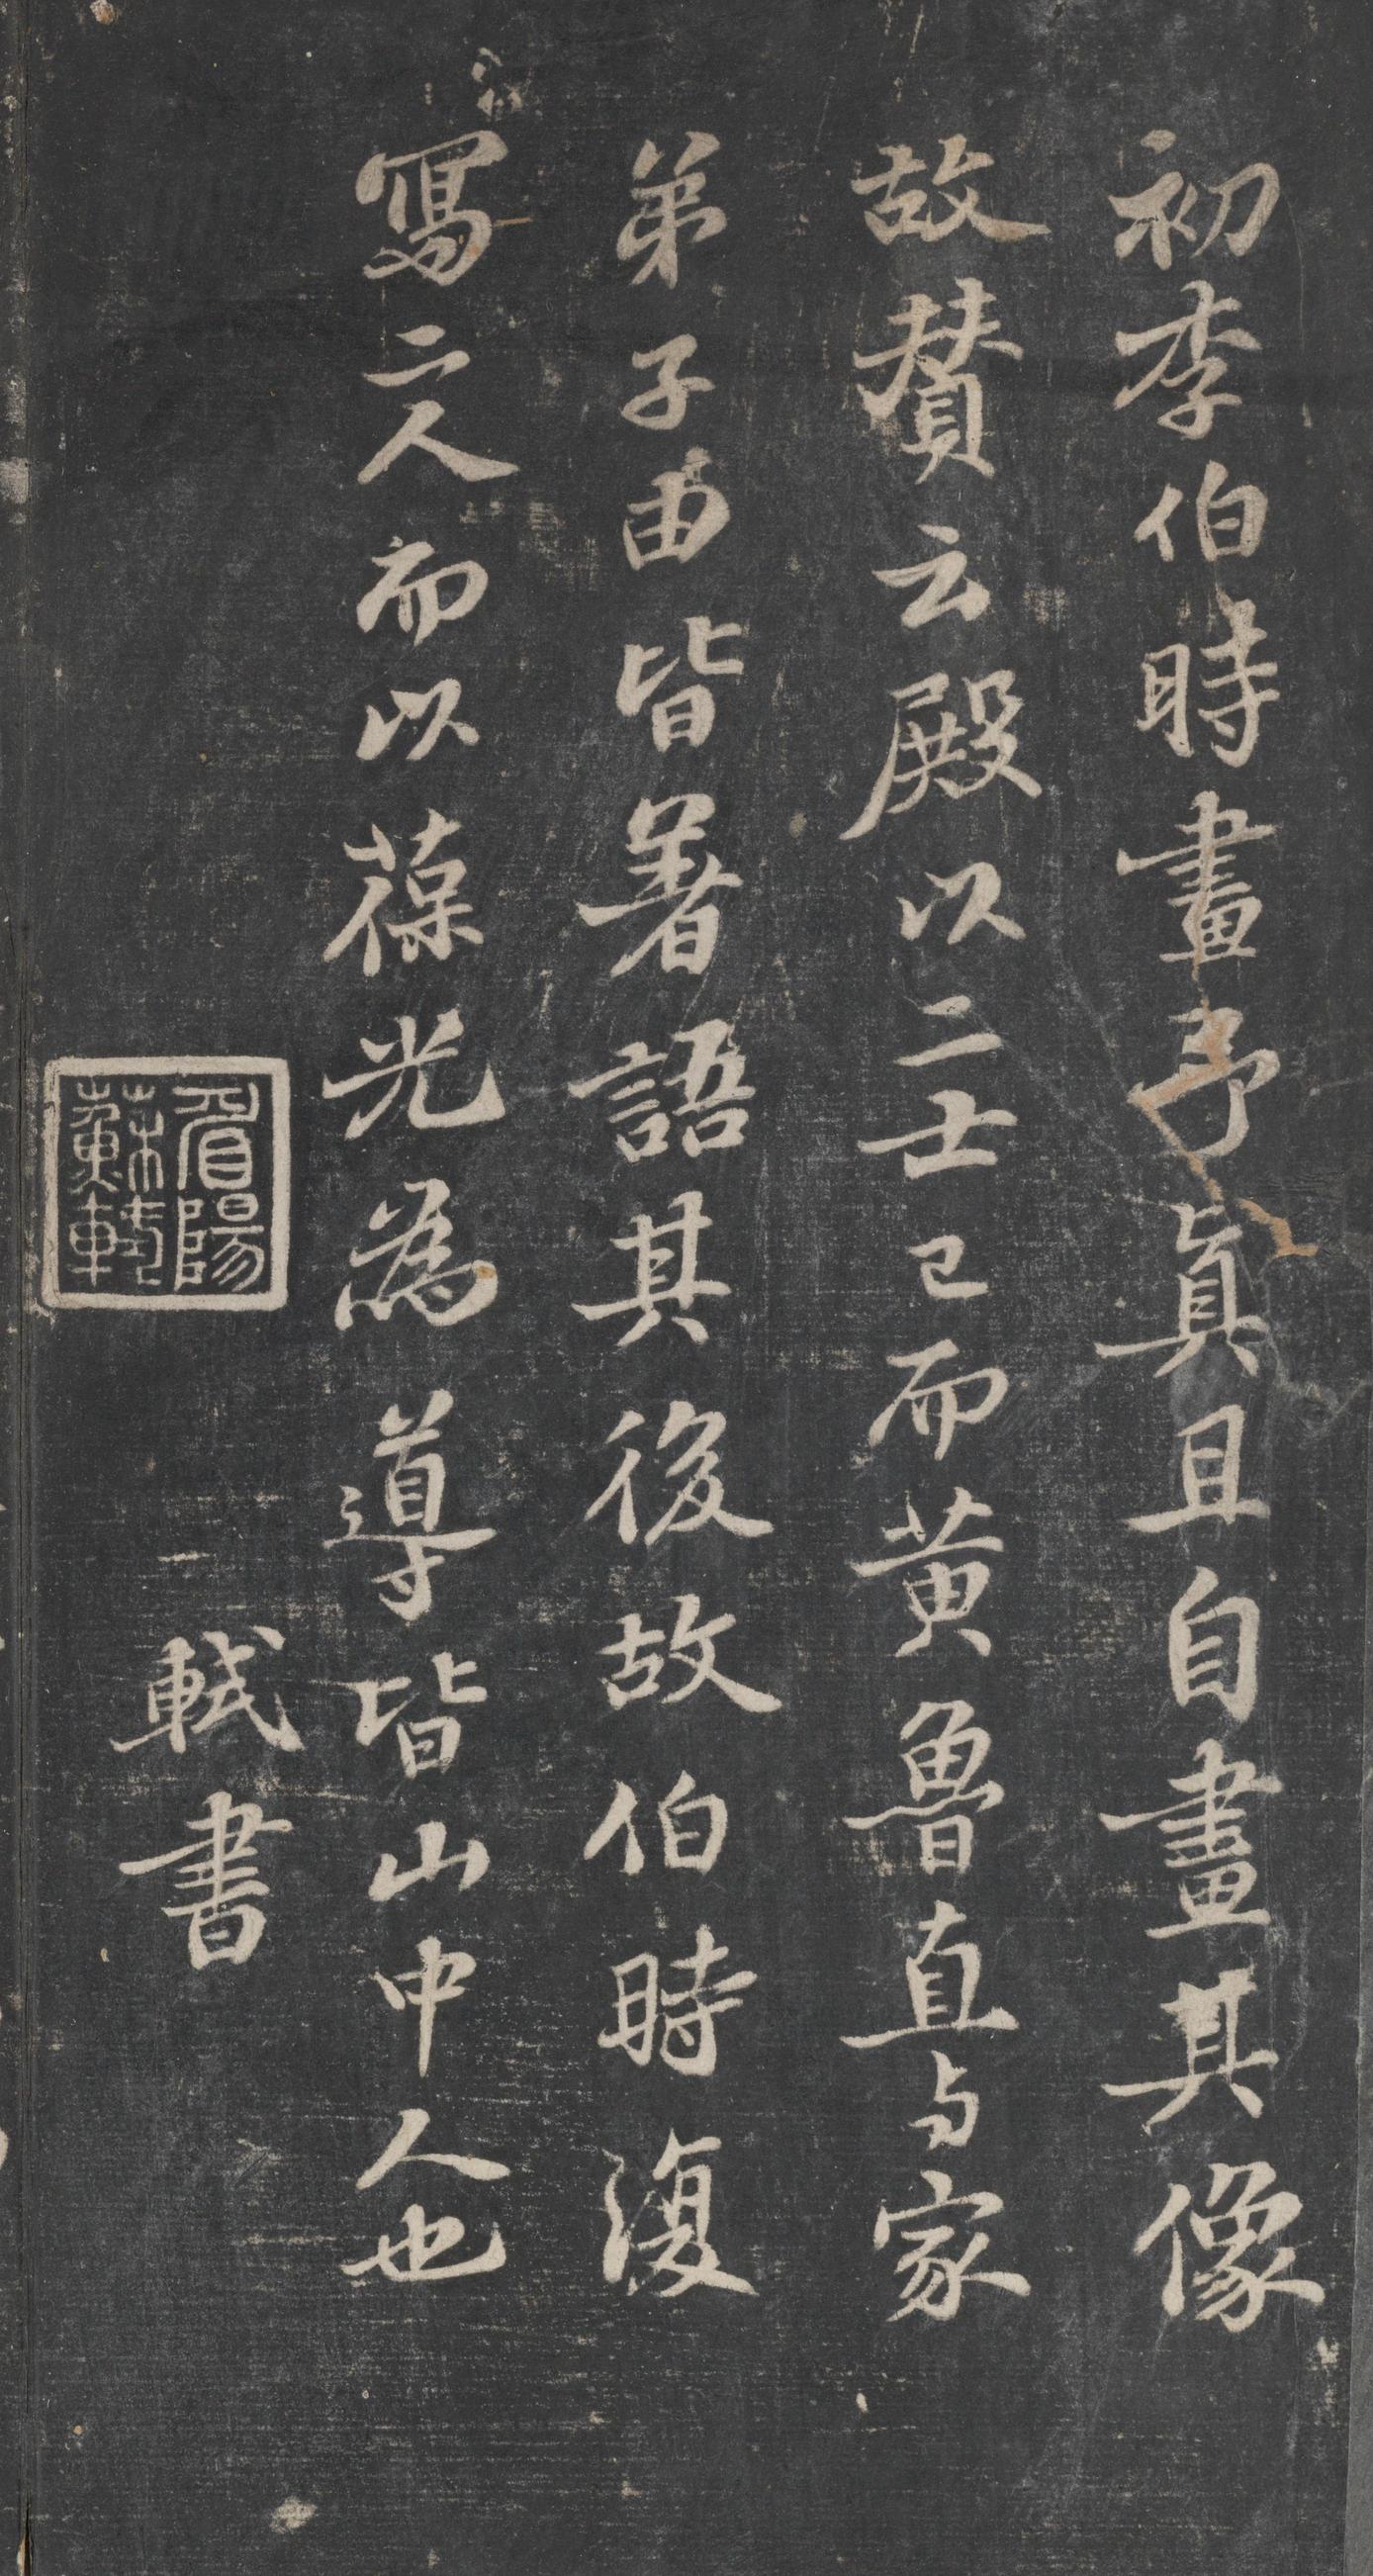 初李伯時畫予真且自畫其像
故贊云殿以二士已而黄魯直与家
弟子由皆署語其後故伯時復
寫二人而以葆光為導皆山中人也
軾書
眉陽蘇軾